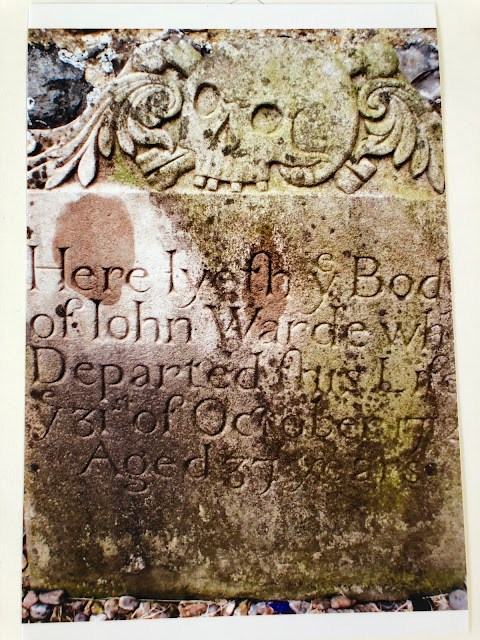 Here lyeth yͤ Bod
of Iohn Warde wh
Departed this Life
yͤ 31ˢᵗ of October 17
Aged 37 years